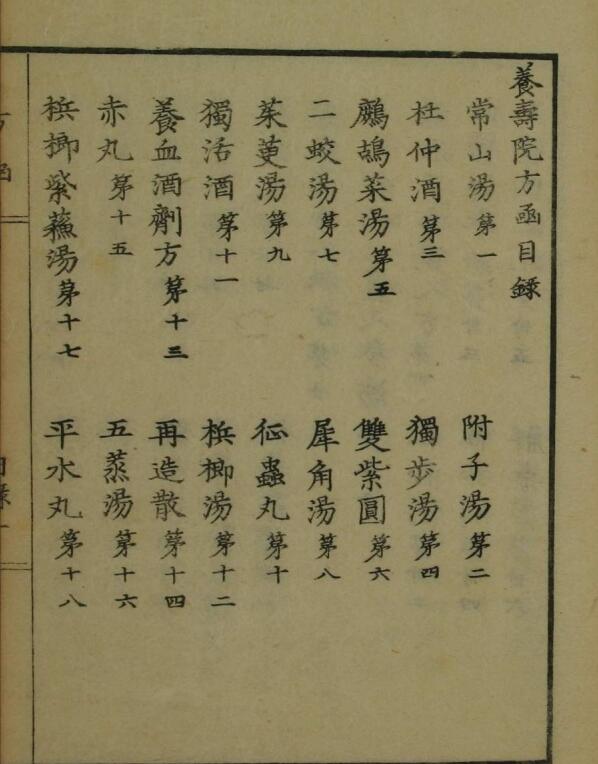 養壽院方函目錄
常山湯第一 附子湯第二
杜仲酒第三 獨步湯第四
鷓鴣菜湯第五 雙紫圓第六
二蛟湯第七 犀角湯第八
茱萸湯第九 征蟲丸第十
獨活酒第十一 梹榔湯第十二
養血酒劑方第十三 再造散第十四
赤丸第十五 五蒸湯第十六
梹榔紫蘓湯第十七 平水丸第十八
方函
目錄一